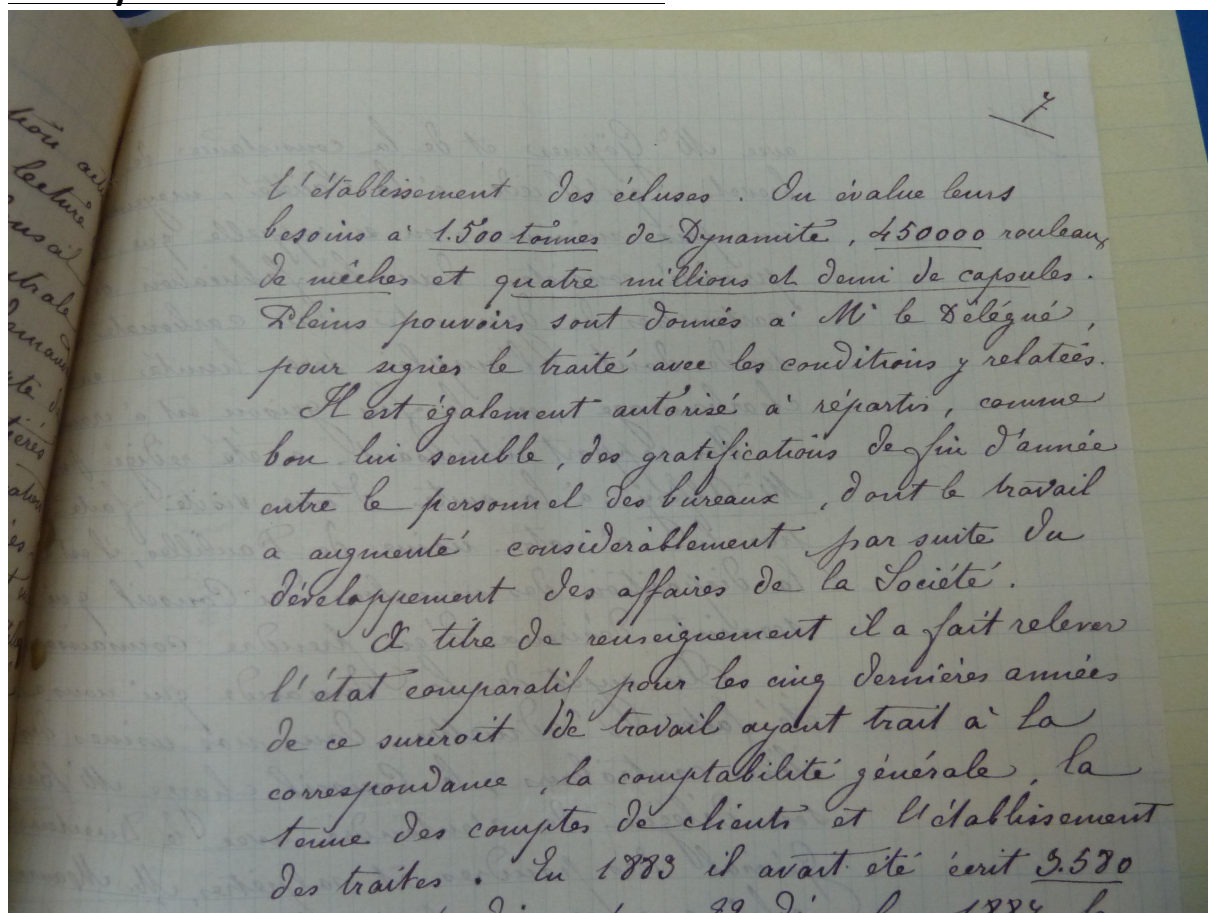 7
l'établissement des écluses. On évalue leurs
besoins à 1.500 tonnes de Dynamite, 450000 rouleaux
de mêches et quatre millions et demi de capsules.
Pleins pouvoirs sont donnés à Mr le Délégué,
pour signer le traité avec les conditions y relatées.
Il est également autorisé à répartir, comme
bon lui semble, des gratifications de fin d'année
entre le personnel des bureaux, dont le travail
a augmenté considérablement par suite du
développement des affaires de la Société.
A titre de renseignement il a fait relever
l'état comparatif pour les cinq dernières années
de ce surcroit de travail ayant trait à la
correspondance, la comptabilité générale, la
tenue des comptes de clients et l'établissement
des traites. En 1883 il avait été écrit 3.580
lecture